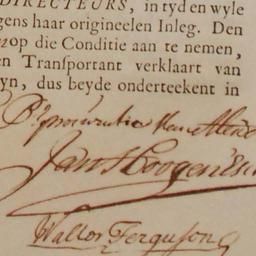 DIRECTEURS, in tyd en wyle
gens haar origineelen Inleg. Den
op die Conditie aan te nemen,
en Transportant verklaart van
yn, dus beyde onderteekent in
procuratie
Jan Hoogen
Walter Ferguson